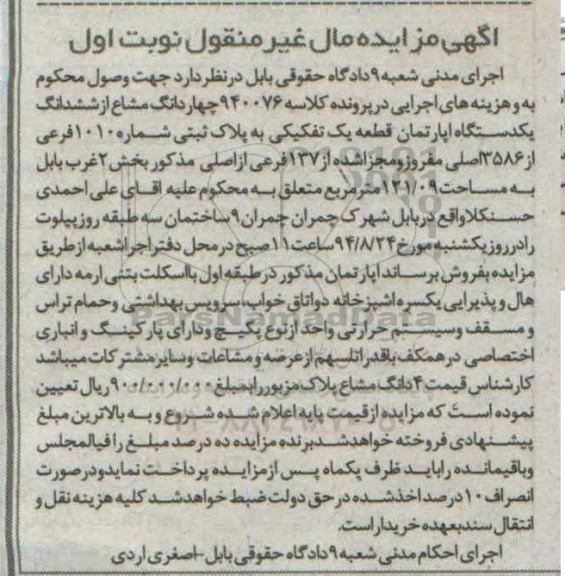 آگهی مزایده مال غیر منقول نوبت اول
اجرای مدنی شعبه ۹دادگاه حقوقی بابل درنظردارد جهت وصول محکوم
به وهزینه های اجرایی درپرونده کلاسه ۹۴۰۰۷۶ چهاردانگ مشاع ازششدانگ
یکدستگاه اپارتمان قطعه یک تفکیکی به پلاک ثبتی شماره ۱۰۱۰فرعی
از ۳۵۸۶اصلی مفروزومجزاشده از۱۳۷فرعی ازاصلی مذکور بخش۲غرب بابل
به مساحت۱۴۱/۰۹مترمربع متعلق به محکوم علیه اقای علی احمدی
حسنکلاواقع دربابل شهرک چمران چمران۹ساختمان سه طبقه روزپیلوت
رادرروزیکشنبه مورخ ۹۴/۸/۲۴ساعت۱۱صبح درمحل دفتراجراشعبه ازطریق
مزایده بفروش برساند اپارتمان مذکور درطبقه اول بااسکلت بتنی ارمه دارای
هال وپذیرایی یکسره اشپزخانه دواتاق خواب،سرویس بهداشتی وحمام تراس
و مسقف وسیستم حرارتی واحد ازنوع پکیج ودارای پارکینگ و انباری
اختصاصی درهمکف باقدرالسهم ازعرصه ومشاعات وسایرمشترکات میباشد
کارشناس قیمت ۴دانگ مشاع پلاک مزبوررابمبلغ۹۰۰/۰۰۰/۰۰۰ریال تعیین
نموده است که مزایده ازقیمت پایه اعلام شده شروع و به بالاترین مبلغ
پیشنهادی فروخته خواهدشدبرنده مزایده ده درصد مبلغ رافیالمجلس
وباقیمانده رابایدظرف یکماه پس ازمزایده پرداخت نمایدودرصورت
انصراف ۱۰درصد اخذشده درحق دولت ضبط خواهدشد کلیه هزینه نقل و
انتقال سندبعهده خریداراست.
اجرای احکام مدنی شعبه ۹دادگاه حقوقی بابل-اصغری اردی
ParsNamadData